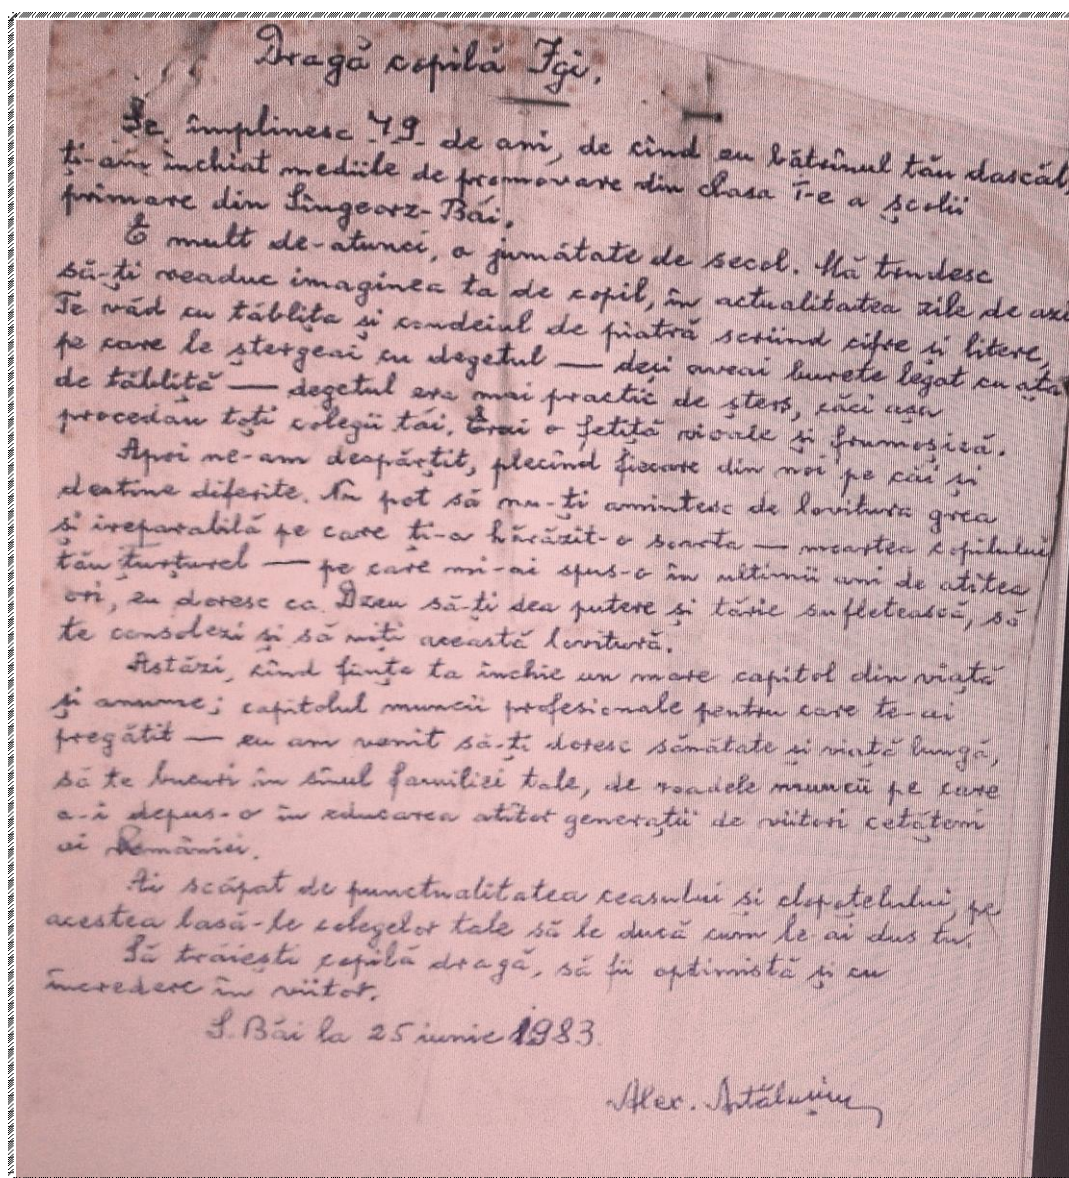 Dragă copilă Igi,
Se împlinesc 49 de ani, de cînd eu bătrînul tău dascăl,
ți-am închiat mediile de promovare din clasa I-e a școlii
primare din Sîngeorz-Băi.
E mult de-atunci, o jumătate de secol. Mă trudesc
să-ți readuc imaginea ta de copil, în actualitatea zile de azi
Te văd cu tăblița și condeiul de piatră scriind cifre și litere,
pe care le ștergeai cu degetul — deși aveai burete legat cu ața
de tăbliță — degetul era mai practic de șters, căci așa
procedau toți colegii tăi. Erai o fetiță vioaie și frumoșică.
Apoi ne-am despărțit, plecînd fiecare din noi pe căi și
destine diferite. Nu pot să nu-ți amintesc de lovitura grea
și ireparabilă pe care ți-a hărăzit-o soarta — moartea copilului
tău Țurțurel — pe care mi-ai spus-o în ultimii ani de atîtea
ori, eu doresc ca Dzeu să-ți dea putere și tărie sufletească, să
te consolezi și să uiți această lovitură.
Astăzi, cînd ființa ta închie un mare capitol din viață
și anume; capitolul muncii profesionale pentru care te-ai
pregătit — eu am venit să-ți doresc sănătate și viață lungă,
să te bucuri în sînul familiei tale, de roadele muncii pe care
a-i depus-o în educarea atîtor generații de viitori cetățeni
ai României.
Ai scăpat de punctualitatea ceasului și clopotelului, pe
acestea lasă-le colegelor tale să le ducă cum le-ai dus tu.
Să trăiești copilă dragă, să fii optimistă și cu
încredere în viitor.
S. Băi la 25 iunie 1983.
Alex.